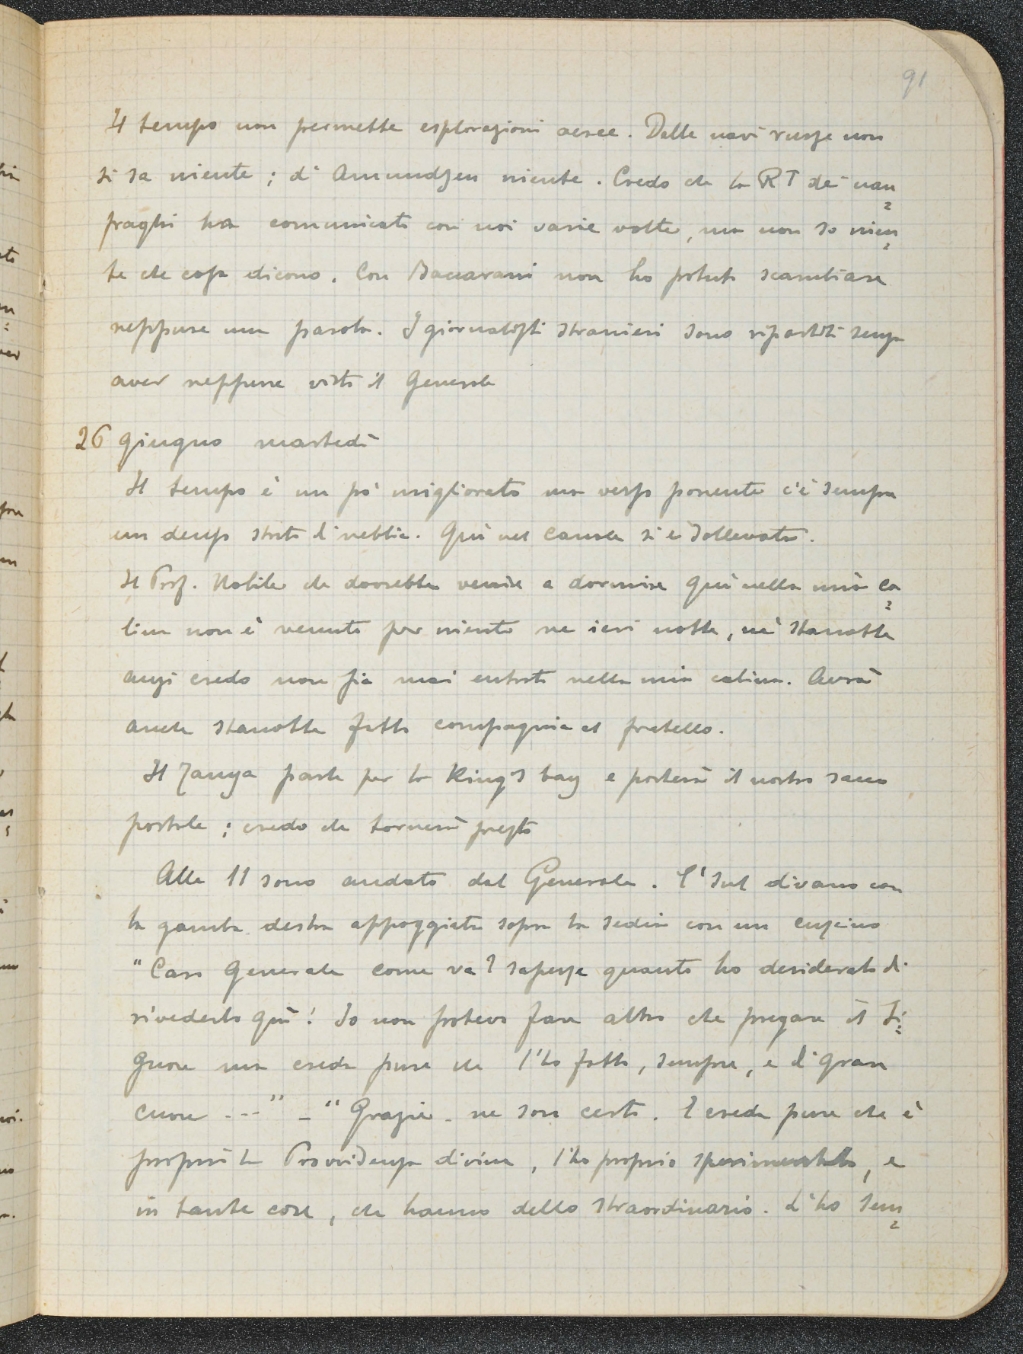 91
Il tempo non permette esplorazioni aeree. Delle navi russe non
si sa niente; di Amundsen niente. Credo che la RT dei nau=
fraghi ha comunicato con noi varie volte, ma non so nien=
te che cosa dicono. Con Baccarani non ho potuto scambiare
neppure una parola. I giornalisti stranieri sono ripartiti senza
aver neppure visto il Generale
26 giugno martedì
Il tempo è un po' migliorato ma verso ponente c'è sempre
un denso strato di nebbia. Qui nel canale si è sollevato.
Il Prof. Nobile che dovrebbe venire a dormire qui nella mia ca=
bina non è venuto per niente ne ieri notte, nè stanotte
anzi credo non sia mai entrato nella mia cabina. Avrà
anche stanotte fatto compagnia al fratello.
Il Zanga parte per la King's bay e porterà il nostro sacco
postale; credo che tornerà presto
Alle 11 sono andato dal Generale. È sul divano con
la gamba destra appoggiata sopra la sedia con un cuscino
"Caro Generale come va? sapesse quanto ho desiderato di
rivederlo quì! Io non potevo fare altro che pregare il Si=
gnore ma creda pure che l'ho fatto, sempre, e di gran
cuore ---" – "Grazie. ne son certo. E creda pure che è
proprio la Provvidenza divina, l'ho proprio sperimentato, e
in tante cose, che hanno dello straordinario. L'ho sem=